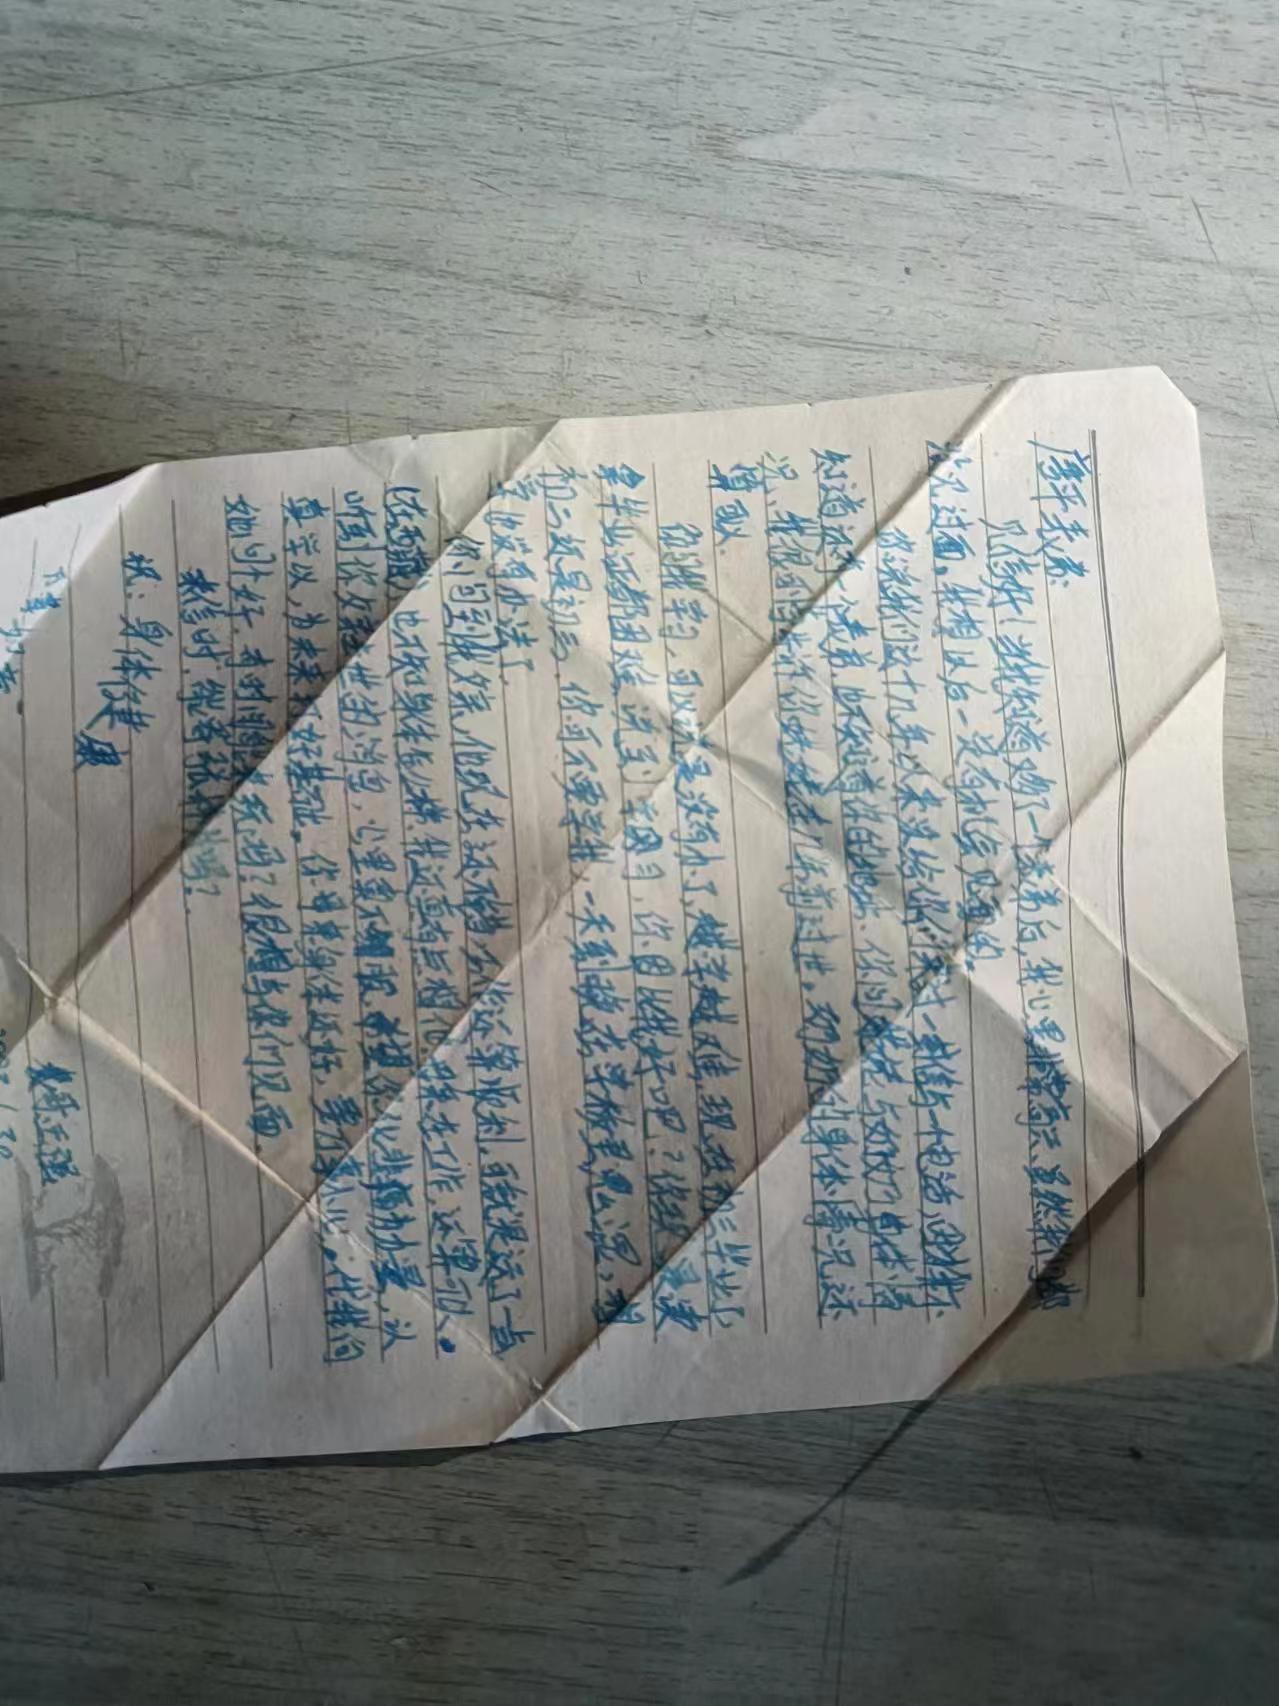 平表弟:
见信好!当我知道又多了一个表弟后,我心里非常高兴、虽然我们都
没见过面。我想以后一定有机会见面的。
你说我们这十几年以来没给你们来过一封信与一个电话,因为我不
知道还有一个表弟.也不知道你的地址、你问 与奶奶身体情
况、我很 告诉你 在几年前过世。奶奶的身体情况还
算可以.
你问我学习,可以说是没有办了,越学越难,现在初三毕业了
拿毕业证都困难.说到学习,你因比我好吧?你现是读
初二还是初三.你可不要学我,一天到晚在学校里鬼混,想
学也没有办法了.
你问到我父亲,他现在还不错,工作还算顺利,可就是远了一点
(在西藏),也不知身体怎么样.我还真有点想他.母亲在工作,还算可以。
听到你父亲去世的消息,心里真不舒服.希望你化悲痛为力量,认
真学以,为未来打好基础。你母亲身体还好,要万事小心。代我向
她问个好.有时间能来玩吗?很想与你们见面.
来信时.能寄张 片吗?
祝:身体健
康
表哥王强